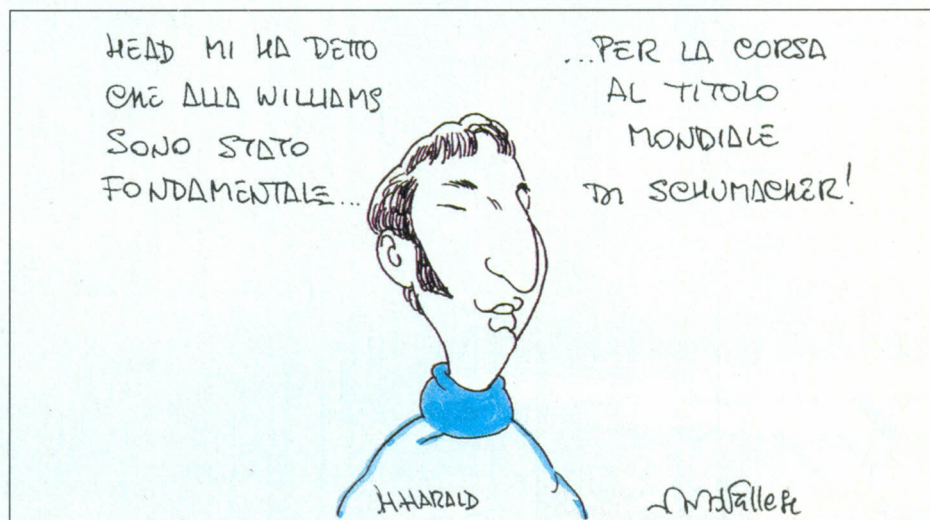 HEAD MI HA DETTO
CHE ALLA WILLIAMS
SONO STATO
FONDAMENTALE...
...PER LA CORSA
AL TITOLO
MONDIALE
DI SCHUMACHER!
H.HARALD